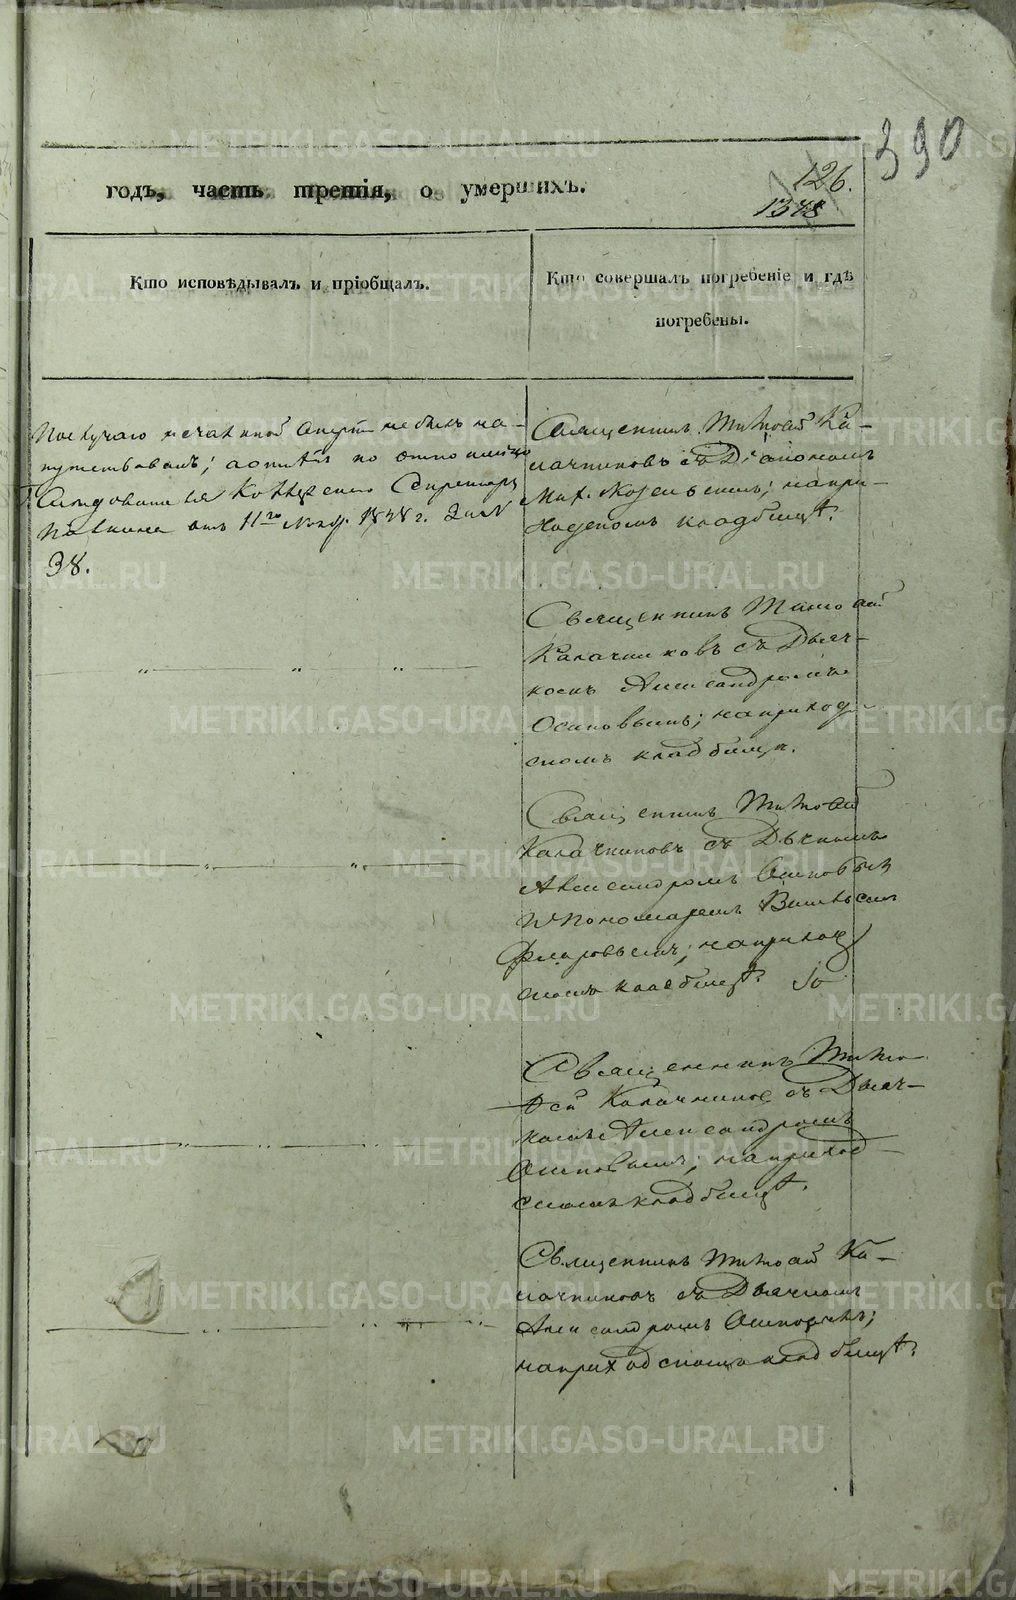 390
годъ, часть третія, о умершихъ.
126.
1348
Кто исповѣдывалъ и пріобщалъ.
Кто совершалъ погребеніе и гдѣ
погребены.
По случаю нечаянной смерти не былъ на-
путствованъ; а отпѣтъ по отношенію
отъ 11го Нояб. 1848 г. за №
38.
Священникъ Тимоѳей Ка-
лачниковъ съ Діакономъ
на при-
ходскомъ кладбищѣ.
Священникъ Тимоѳей
Калачниковъ съ Дьяч-
комъ Александромъ
Осиповымъ; на приход-
скомъ кладбищѣ.
Священникъ Тимоѳей
Калачниковъ съ Дьячкомъ
Александромъ Осиповымъ
и Пономаремъ
на приход
скомъ кладбищѣ.
Священникъ Тимо-
ѳей Калачниковъ съ Дьяч-
комъ Александромъ
Осиповымъ; на приход-
скомъ кладбищѣ.
Священникъ Тимоѳей Ка-
лачниковъ съ Дьячкомъ
Александромъ Осиповымъ;
на приходскомъ кладбищѣ.
METRIKI.GASO-URAL.RU